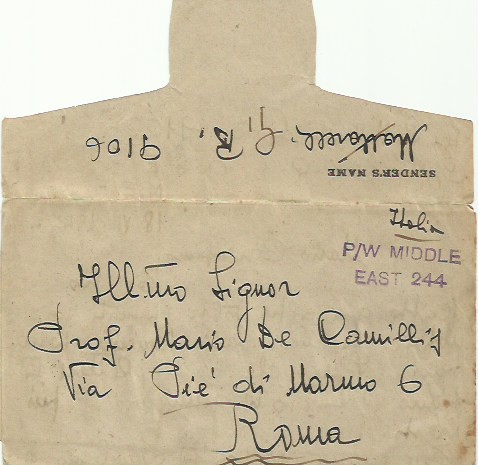 G. B. 9106
SENDER'S NAME
Italia
P/W MIDDLE
EAST 244
Ill.mo Signor
Prof. Mario De Camillis
Via Pie' di Marmo 6
Roma